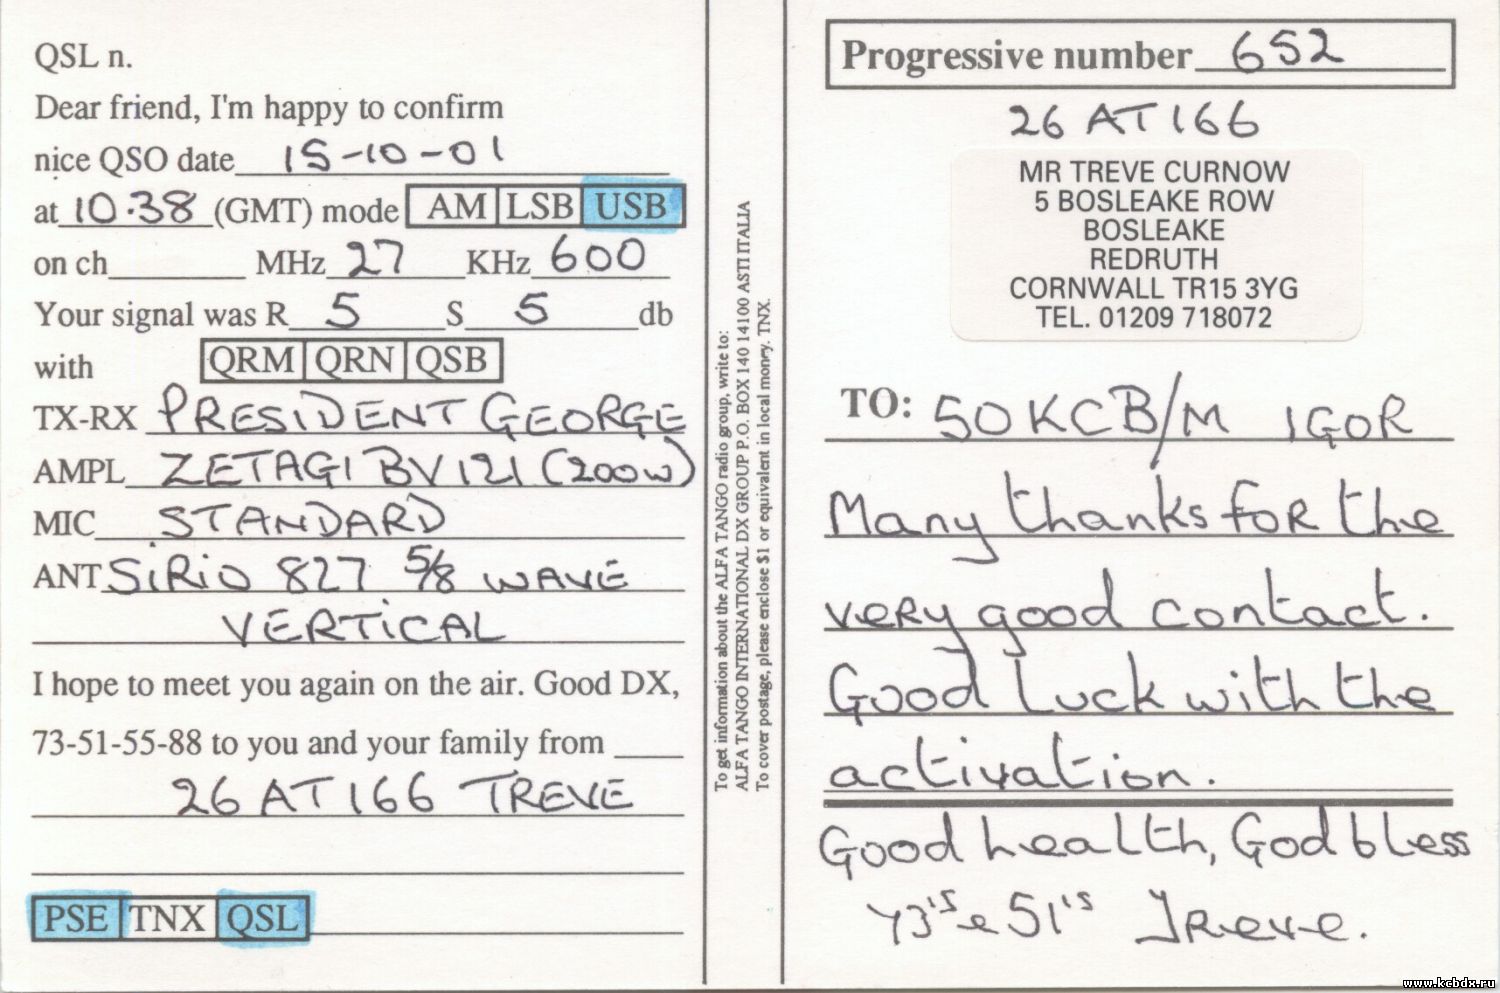 QSL n.
Dear friend, I'm happy to confirm
nice QSO date 15-10-01
at 10.38 (GMT) mode AM LSB USB
on ch MHz 27 KHz 600
Your signal was R 5 S 5 db
with QRM QRN QSB
TX-RX PRESIDENT GEORGE
AMPL ZETAGI BV 121 (200W)
MIC STANDARD
ANT SIRIO 827 5/8 WAVE
VERTICAL
I hope to meet you again on the air. Good DX,
73-51-55-88 to you and your family from
26 AT 166 TREVE
PSE TNX QSL
To get information about the ALFA TANGO radio group, write to:
ALFA TANGO INTERNATIONAL DX GROUP P.O. BOX 140 14100 ASTI ITALIA
To cover postage, please enclose $1 or equivalent in local money. TNX.
Progressive number 652
26 AT 166
MR TREVE CURNOW
5 BOSLEAKE ROW
BOSLEAKE
REDRUTH
CORNWALL TR15 3YG
TEL. 01209 718072
TO: 50KCB/M IGOR
Many thanks for the
very good contact.
Good luck with the
activation.
Good health, God bless
73's e 51's Treve.
www.kcbdx.ru